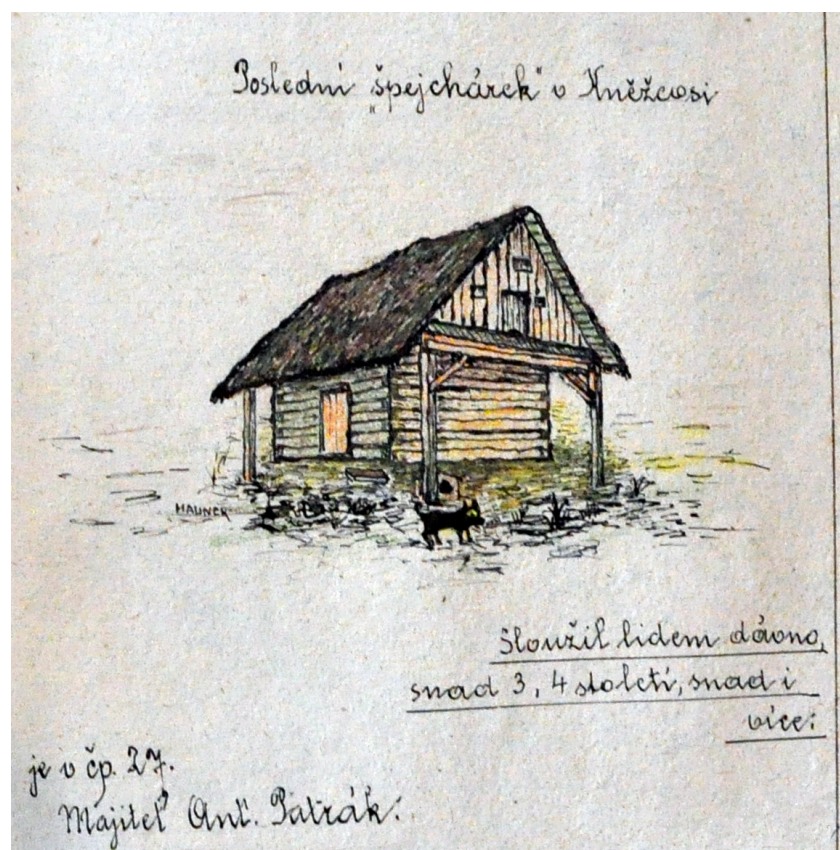 Poslední „špejchárek" v Kněžcvsi
HAUNER
Sloužil lidem dávno,
snad 3, 4 století, snad i
více:
je v čp. 27.
Majitel Ant. Patrák.